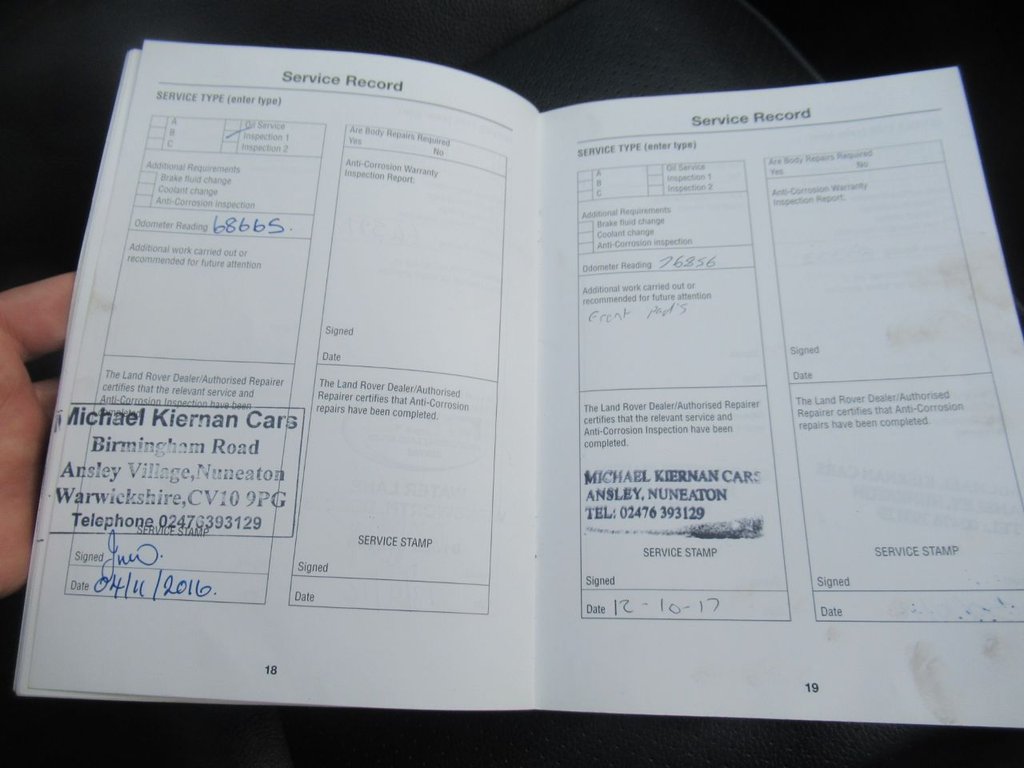 Service Record
SERVICE TYPE (enter type)
A
B
C
Oil Service
Inspection 1
Inspection 2
Additional Requirements
Brake fluid change
Coolant change
Anti-Corrosion inspection
Odometer Reading 68665.
Additional work carried out or
recommended for future attention
The Land Rover Dealer/Authorised Repairer
certifies that the relevant service and
Anti-Corrosion Inspection have been
completed.
Michael Kiernan Cars
Birmingham Road
Ansley Village,Nuneaton
Warwickshire,CV10 9PG
Telephone 02476393129
SERVICE STAMP
Signed
Date 04/11/2016.
Are Body Repairs Required
Yes No
Anti-Corrosion Warranty
Inspection Report:
Signed
Date
The Land Rover Dealer/Authorised
Repairer certifies that Anti-Corrosion
repairs have been completed.
SERVICE STAMP
Signed
Date
18
Service Record
SERVICE TYPE (enter type)
A
B
C
Oil Service
Inspection 1
Inspection 2
Additional Requirements
Brake fluid change
Coolant change
Anti-Corrosion inspection
Odometer Reading 76856
Additional work carried out or
recommended for future attention
Front pad's
The Land Rover Dealer/Authorised Repairer
certifies that the relevant service and
Anti-Corrosion Inspection have been
completed.
MICHAEL KIERNAN CARS
ANSLEY, NUNEATON
TEL: 02476 393129
SERVICE STAMP
Signed
Date 12-10-17
Are Body Repairs Required
Yes No
Anti-Corrosion Warranty
Inspection Report:
Signed
Date
The Land Rover Dealer/Authorised
Repairer certifies that Anti-Corrosion
repairs have been completed.
SERVICE STAMP
Signed
Date
19